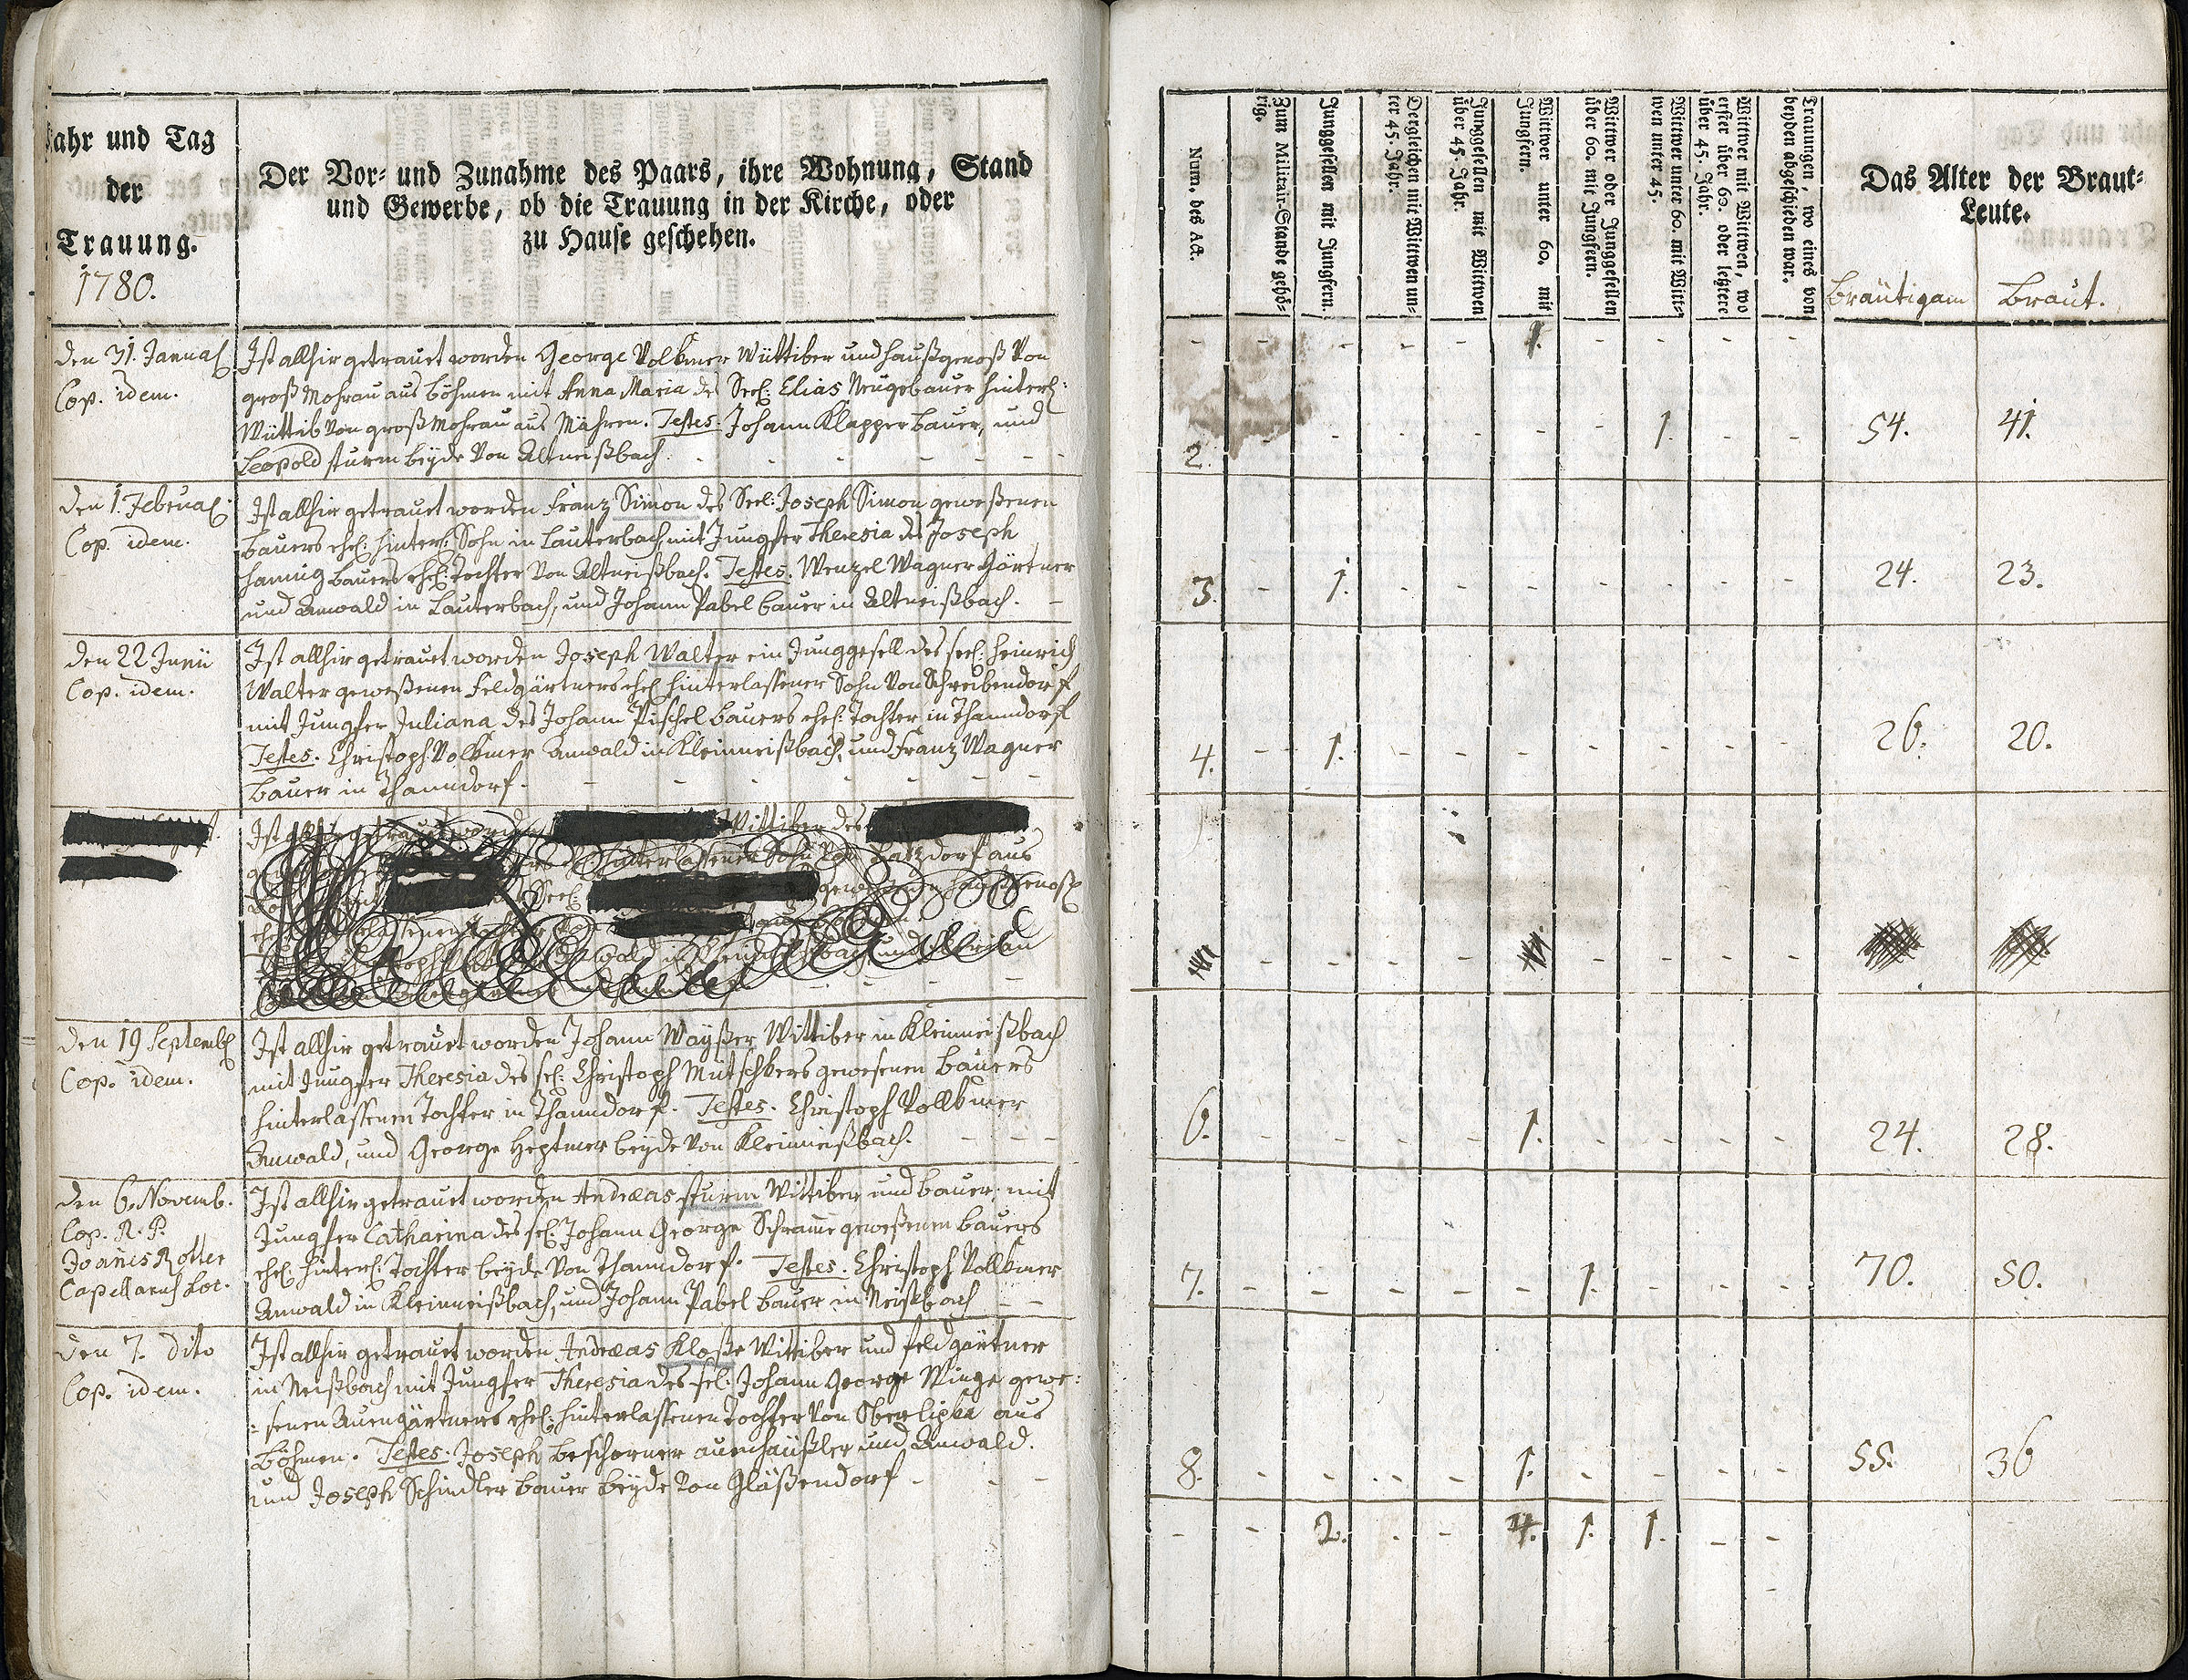 Jahr und Tag
der
Trauung.
1780.
Der Vor- und Zunahme des Paars, ihre Wohnung, Stand
und Gewerbe, ob die Trauung in der Kirche, oder
zu Hause geschehen.
den 31. Januar
Cop. idem.
Ist allhir getrauet worden George Volkmer Wüttiber und Haußgenoß Von
groß Mohrau aus Böhmen mit Anna Maria des Seel: Elias Neugebauer hinterl:
Wüttib Von groß Mohrau aus Mähren. Testes: Johann Klapper Bauer, und
Leopold Sturm beyde Von Altneißbach.
den 1. Februar
Cop. idem.
Ist allhir getrauet worden Franz Simon des Seel: Joseph Simon geweßenen
Bauers ehel: hinterl: Sohn in Lauterbach mit Jungfer Theresia des Joseph
Hannig Bauers ehel: Tochter Von Altneißbach. Testes. Wenzel Wagner Gärtner
und Anwald in Lauterbach, und Johann Pabel Bauer in Altneißbach.
den 22 Junii
Cop. idem.
Ist allhir getrauet worden Joseph Walter ein Junggesell des seel: Heinrich
Walter geweßenen Feldgärtners ehel hinterlassener Sohn Von Schreibendorf
mit Jungfer Juliana des Johann Püschel Bauers ehel: Tochter in Thanndorf
Testes. Christoph Volkmer Anwald in Kleinneißbach, und Franz Wagner
Bauer in Thanndorf.
Ist allhir getrauet worden Wittiber des
hinterlassener Sohn Von Batzdorf aus
Seel: geweßenen Haußgenoß
Tochter
Anwald in Kleinneißbach und
den 19 Septemb
Cop. idem.
Ist allhir getrauet worden Johann Wayßer Wittiber in Kleinneißbach
mit Jungfer Theresia des sel: Christoph Mutschkers gewesenen Bauers
hinterlassenen Tochter in Thanndorf. Testes. Christoph Vollkmer
Anwald, und George Heptner beyde Von Kleinneißbach.
den 6. Novemb.
Cop. R. P.
Joanes Rotter
Capellanus Loc.
Ist allhir getrauet worden Andreas Sturm Wittiber und Bauer mit
Jungfer Catharina des sel: Johann George Schramm geweßenen Bauers
ehel: hinterl: Tochter beyde Von Thanndorf. Testes. Christoph Vollkmer
Anwald in Kleinneißbach, und Johann Pabel Bauer in Neisbach
den 7. dito
Cop. idem.
Ist allhir getrauet worden Andreas Kloße Wittiber und Feldgärtner
in Neißbach mit Jungfer Theresia des sel: Johann George Winge gewe:
:senen Auengärtners ehel: hinterlassenen Tochter Von Oberlipka aus
Böhmen. Testes. Joseph Beschorner auenhäußler und Anwald.
und Joseph Schindler Bauer beyde Von Gläßendorf
Num. des Act.
Zum Militair-Stande gehö-
rig.
Junggesellen mit Jungfern.
Dergleichen mit Wittwen un-
ter 45. Jahr.
Junggesellen mit Wittwen
über 45. Jahr.
Wittwer unter 60. mit
Jungfern.
Wittwer oder Junggesellen
über 60. mit Jungfern.
Wittwer unter 60. mit Witt-
wen unter 45.
Wittwer mit Wittwen, wo
erster über 60. oder letztere
über 45. Jahr.
Trauungen, wo eines von
beyden abgeschieden war.
Das Alter der Braut-
Leute.
Bräutigam Braut.
- - - - - 1. - - - -
2. - - - - - - 1. - - 54. 41.
3. - 1. - - - - - - - 24. 23.
4. - 1. - - - - - - - 26. 20.
- - - - - - - -
6. - - - - 1. - - - - 24. 28.
7. - - - - - 1. - - - 70. 50.
8. - - - - 1. - - - - 55. 36
- - 2. - - 4. 1. 1. - -